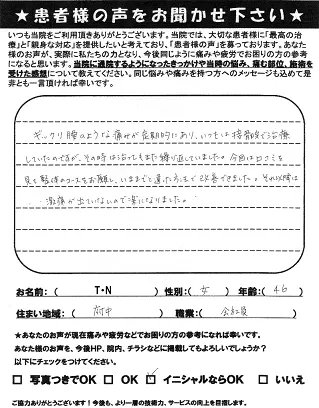 ★患者様の声をお聞かせ下さい★
いつも当院をご利用頂きありがとうございます。当院では、大切な患者様に「最高の治
療」と「親身な対応」を提供したいと考えており、「患者様の声」を募っております。あなた
様のお声が、実際に私たちの力となり、今後同じように痛みや疲労でお困りの方の参考
になると思います。当院に通院するようになったきっかけや当時の悩み、痛む部位、施術を
受けた感想について教えてください。同じ悩みや痛みを持つ方へのメッセージも込めて是
非とも一言頂ければ幸いです。
ギックリ腰のような痛みが定期的にあり、いつもは接骨院で治療
していたのですが、その時は治ってもまた繰り返していました。今回は口コミを
見て整体のコースをお願し、いままでと違った方法で改善できました。それ以降は
激痛が出ていないので楽になりました。
お名前：（ T・N ） 性別：（ 女 ） 年齢：（ 46 ）
住まい地域：（ 府中 ） 職業：（ 会社員 ）
★あなたのお声が現在痛みや疲労などでお困りの方の参考になれば幸いです。
あなた様のお声を、今後HP、院内、チラシなどに掲載してもよろしいでしょうか？
以下にチェックをつけてください。
□ 写真つきでOK □ OK ☑ イニシャルならOK □ いいえ
ご協力ありがとうございます！今後も、より一層の技術力、サービスの向上を目指します。